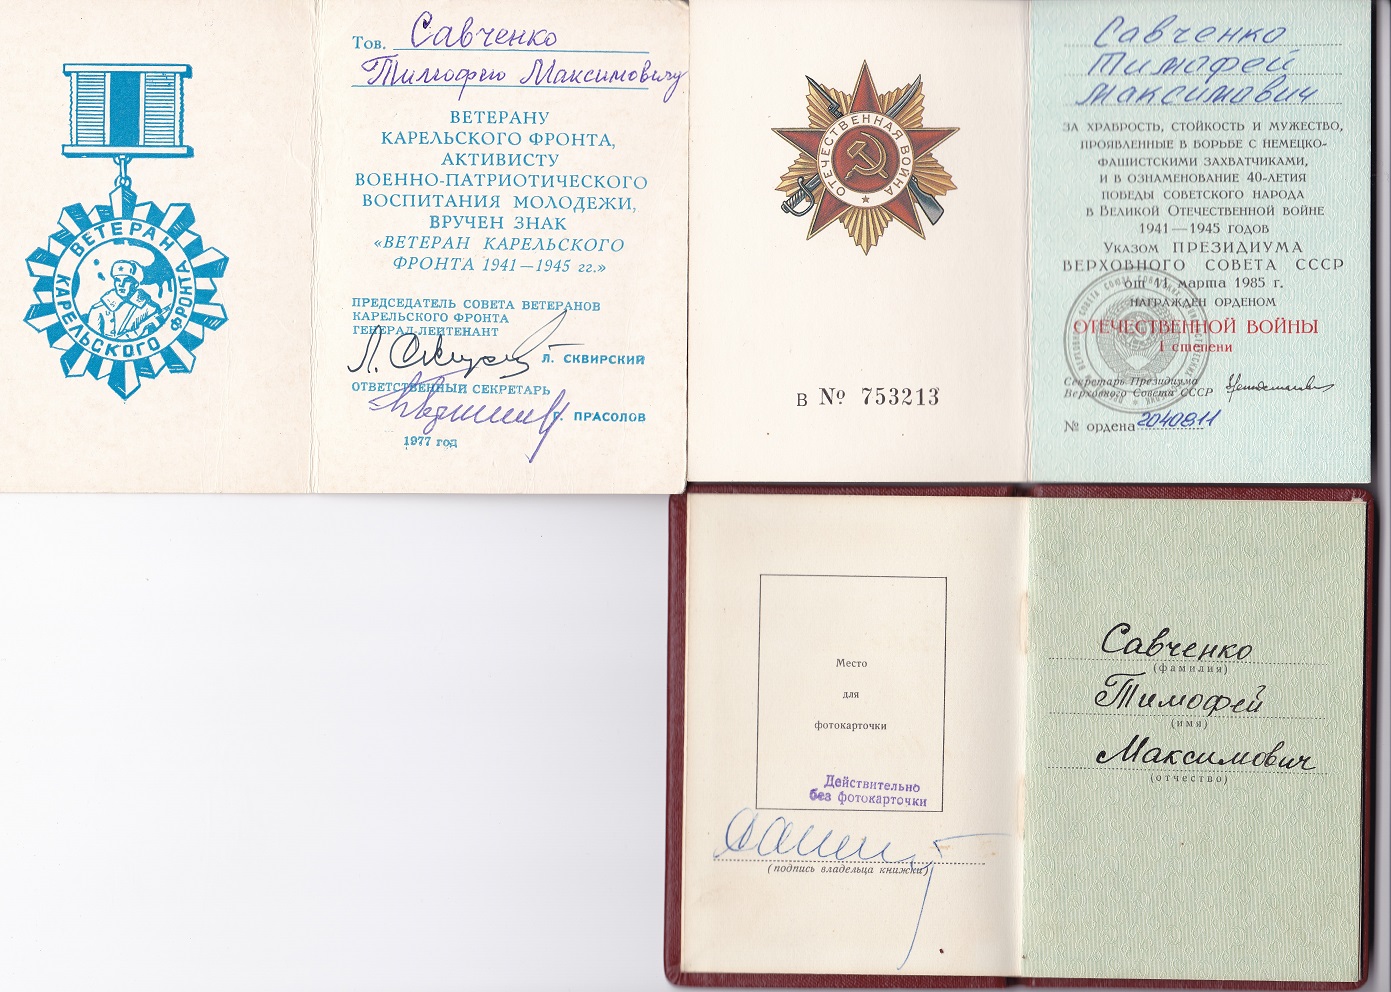 ВЕТЕРАН
КАРЕЛЬСКОГО ФРОНТА
Тов. Савченко
Тимофею Максимовичу
ВЕТЕРАНУ
КАРЕЛЬСКОГО ФРОНТА,
АКТИВИСТУ
ВОЕННО-ПАТРИОТИЧЕСКОГО
ВОСПИТАНИЯ МОЛОДЕЖИ,
ВРУЧЕН ЗНАК
«ВЕТЕРАН КАРЕЛЬСКОГО
ФРОНТА 1941—1945 гг.»
ПРЕДСЕДАТЕЛЬ СОВЕТА ВЕТЕРАНОВ
КАРЕЛЬСКОГО ФРОНТА
ГЕНЕРАЛ-ЛЕЙТЕНАНТ
Л. СКВИРСКИЙ
ОТВЕТСТВЕННЫЙ СЕКРЕТАРЬ
Г. ПРАСОЛОВ
1977 год
ОТЕЧЕСТВЕННАЯ ВОЙНА
В № 753213
Савченко
Тимофей
Максимович
ЗА ХРАБРОСТЬ, СТОЙКОСТЬ И МУЖЕСТВО,
ПРОЯВЛЕННЫЕ В БОРЬБЕ С НЕМЕЦКО-
ФАШИСТСКИМИ ЗАХВАТЧИКАМИ,
И В ОЗНАМЕНОВАНИЕ 40-ЛЕТИЯ
ПОБЕДЫ СОВЕТСКОГО НАРОДА
В ВЕЛИКОЙ ОТЕЧЕСТВЕННОЙ ВОЙНЕ
1941—1945 ГОДОВ
УКАЗОМ ПРЕЗИДИУМА
ВЕРХОВНОГО СОВЕТА СССР
от 11 марта 1985 г.
НАГРАЖДЕН ОРДЕНОМ
ОТЕЧЕСТВЕННОЙ ВОЙНЫ
I степени
Секретарь Президиума
Верховного Совета СССР
№ ордена 2040811
Место
для
фотокарточки
Действительно
без фотокарточки
(подпись владельца книжки)
Савченко
(фамилия)
Тимофей
(имя)
Максимович
(отчество)